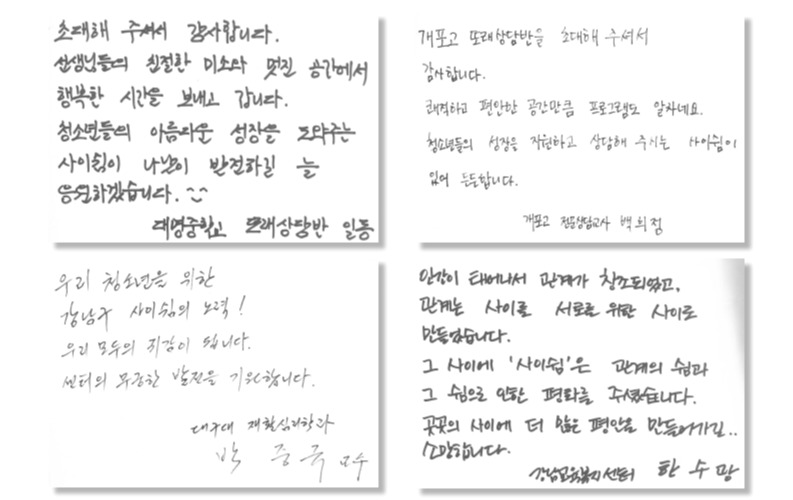 초대해 주셔서 감사합니다.
선생님들의 친절한 미소와 멋진 공간에서
행복한 시간을 보내고 갑니다.
청소년들의 아름다운 성장을 도와주는
사이쉼이 나날이 발전하길 늘
응원하겠습니다. ^^
대명중학교 또래상담반 일동
개포고 또래상담반을 초대해 주셔서
감사합니다.
쾌적하고 편안한 공간만큼 프로그램도 알차네요.
청소년들의 성장을 지원하고 상담해 주시는 사이쉼이
있어 든든합니다.
개포고 전문상담교사 백희정
우리 청소년을 위한
강남구 사이쉼의 노력!
우리 모두의 귀감이 됩니다.
센터의 무궁한 발전을 기원합니다.
대구대 재활심리학과
박 중 규 교수
인간이 태어나서 관계가 창조되었고,
관계는 사이를 서로를 위한 사이로
만들었습니다.
그 사이에 '사이쉼'은 관계의 쉼과
그 쉼으로 인한 평화를 주셨습니다.
곳곳의 사이에 더 많은 평안을 만들어가길..
소망합니다.
강남교육복지센터 한 수 망